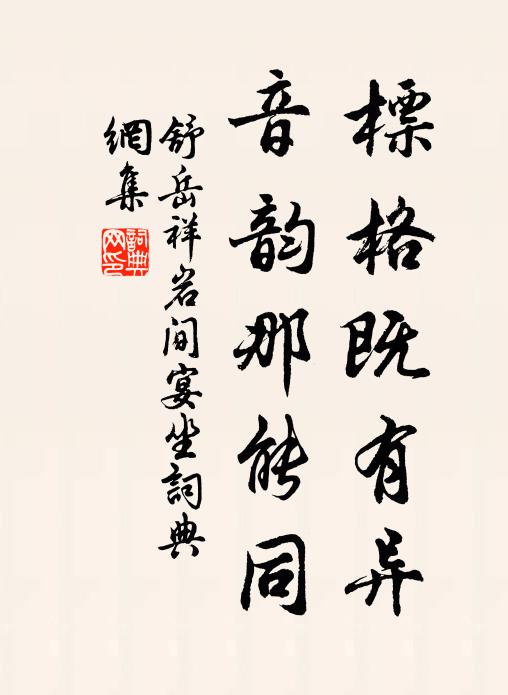 標格既有异
音韵那能同
舒岳祥岩间宴坐詞典
網集
詞典
网印